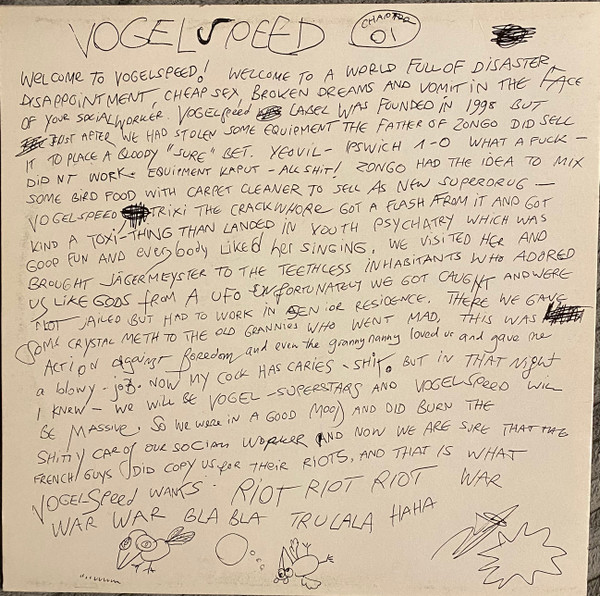 VOGELSPEED CHAPTER 01
WELCOME TO VOGELSPEED! WELCOME TO A WORLD FULL OF DISASTER,
DISAPPOINTMENT, CHEAP SEX, BROKEN DREAMS AND VOMIT IN THE FACE
OF YOUR SOCIALWORKER. VOGELSPEED LABEL WAS FOUNDED IN 1998 BUT
JUST AFTER WE HAD STOLEN SOME EQUIPMENT THE FATHER OF ZONGO DID SELL
IT TO PLACE A BLOODY "SURE" BET. YEOVIL - IPSWICH 1-0 WHAT A FUCK -
DID NT WORK. EQUIPMENT KAPUT - ALL SHIT! ZONGO HAD THE IDEA TO MIX
SOME BIRD FOOD WITH CARPET CLEANER TO SELL AS NEW SUPERDRUG -
VOGELSPEED TRIXI THE CRACKWHORE GOT A FLASH FROM IT AND GOT
KIND A TOXI-THING THAN LANDED IN YOUTH PSYCHATRY WHICH WAS
GOOD FUN AND everybody LIKED her SINGING. WE VISITED HER AND
BROUGHT JÄGERMEYSTER TO THE TEETHLESS INHABITANTS WHO ADORED
US LIKE GODS FROM A UFO UNFORTUNATELY WE GOT CAUGHT AND WERE
NOT JAILED BUT HAD TO WORK IN SENIOR RESIDENCE. THERE WE GAVE
SOME CRYSTAL METH TO THE OLD GRANNIES WHO WENT MAD, THIS WAS
ACTION against BOREDOM and even the grannynanny loved us and gave me
a blowy-job. NOW MY COCK HAS CARIES - SHIT. BUT IN THAT Night
I KNEW - WE WILL BE VOGEL-SUPERSTARS AND VOGELSPEED WILL
BE MASSIVE. SO WE WERE IN A GOOD MOOD AND DID BURN THE
SHITTY CAR OF OUR SOCIAL WORKER AND NOW WE ARE SURE THAT THE
FRENCH GUYS DID COPY US for THEIR RIOTS, AND THAT IS WHAT
VOGELSPEED WANTS. RIOT RIOT RIOT WAR
WAR WAR BLA BLA TRULALA HAHA